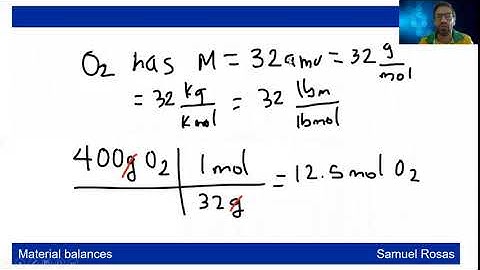 O2 has M = 32 amu = 32 g/mol
= 32 kg/kmol = 32 lbm/lbmol
400g O2 | 1mol / 32g = 12.5mol O2
Material balances Samuel Rosas